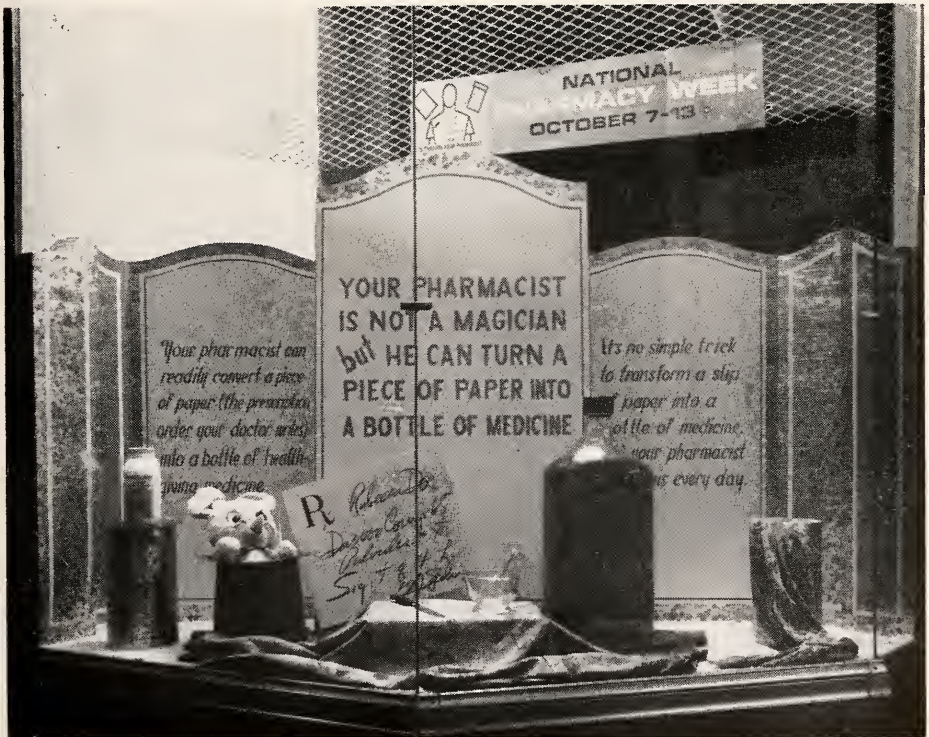 NATIONAL
PHARMACY WEEK
OCTOBER 7-13
YOUR PHARMACIST
IS NOT A MAGICIAN
but HE CAN TURN A
PIECE OF PAPER INTO
A BOTTLE OF MEDICINE
Your pharmacist can
readily convert a piece
of paper (the prescription
order your doctor writes)
into a bottle of health-
giving medicine.
It's no simple trick
to transform a slip
of paper into a
bottle of medicine,
your pharmacist
every day.
R